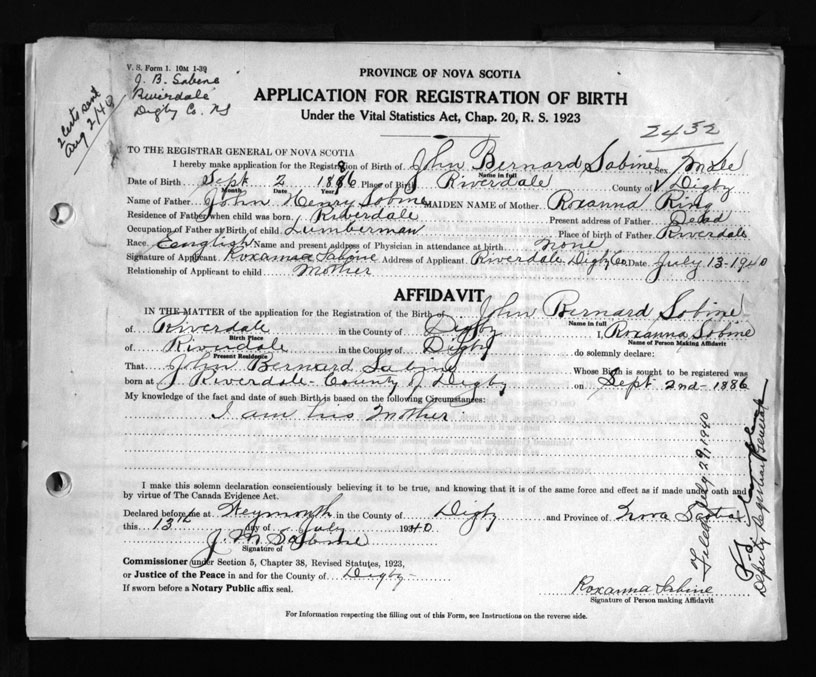 V. S. Form 1. 10M 1-39
J. B. Sabine
Riverdale
Digby Co. NS
2 certs sent
Aug 2/40
PROVINCE OF NOVA SCOTIA
APPLICATION FOR REGISTRATION OF BIRTH
Under the Vital Statistics Act, Chap. 20, R. S. 1923
2432
TO THE REGISTRAR GENERAL OF NOVA SCOTIA
I hereby make application for the Registration of Birth of John Bernard Sabine Sex Male
Name in full
Date of Birth Sept 2 1886 Place of Birth Riverdale County of Digby
Month Date Year
Name of Father John Henry Sabine MAIDEN NAME of Mother Roxanna Ring
Residence of Father when child was born Riverdale Present address of Father Dead
Occupation of Father at Birth of child Lumberman Place of birth of Father Riverdale
Race English Name and present address of Physician in attendance at birth none
Signature of Applicant Roxanna Sabine Address of Applicant Riverdale Digby Co. Date July 13-1940
Relationship of Applicant to child Mother
AFFIDAVIT
IN THE MATTER of the application for the Registration of the Birth of John Bernard Sabine
Name in full
of Riverdale in the County of Digby I, Roxanna Sabine
Birth Place Name of Person Making Affidavit
of Riverdale in the County of Digby do solemnly declare:
Present Residence
That John Bernard Sabine Whose Birth is sought to be registered was
born at Riverdale - County of Digby on Sept 2nd - 1886
My knowledge of the fact and date of such Birth is based on the following Circumstances:
I am his Mother
I make this solemn declaration conscientiously believing it to be true, and knowing that it is of the same force and effect as if made under oath and
by virtue of The Canada Evidence Act.
Declared before me at Weymouth in the County of Digby and Province of Nova Scotia
this 13th day of July 1940
J. M. Sabine
Signature of
Commissioner (under Section 5, Chapter 38, Revised Statutes, 1923,
or Justice of the Peace in and for the County of Digby
If sworn before a Notary Public affix seal.
Roxanna Sabine
Signature of Person making Affidavit
For Information respecting the filling out of this Form, see Instructions on the reverse side.
Filed July 29, 1940
Deputy Registrar General